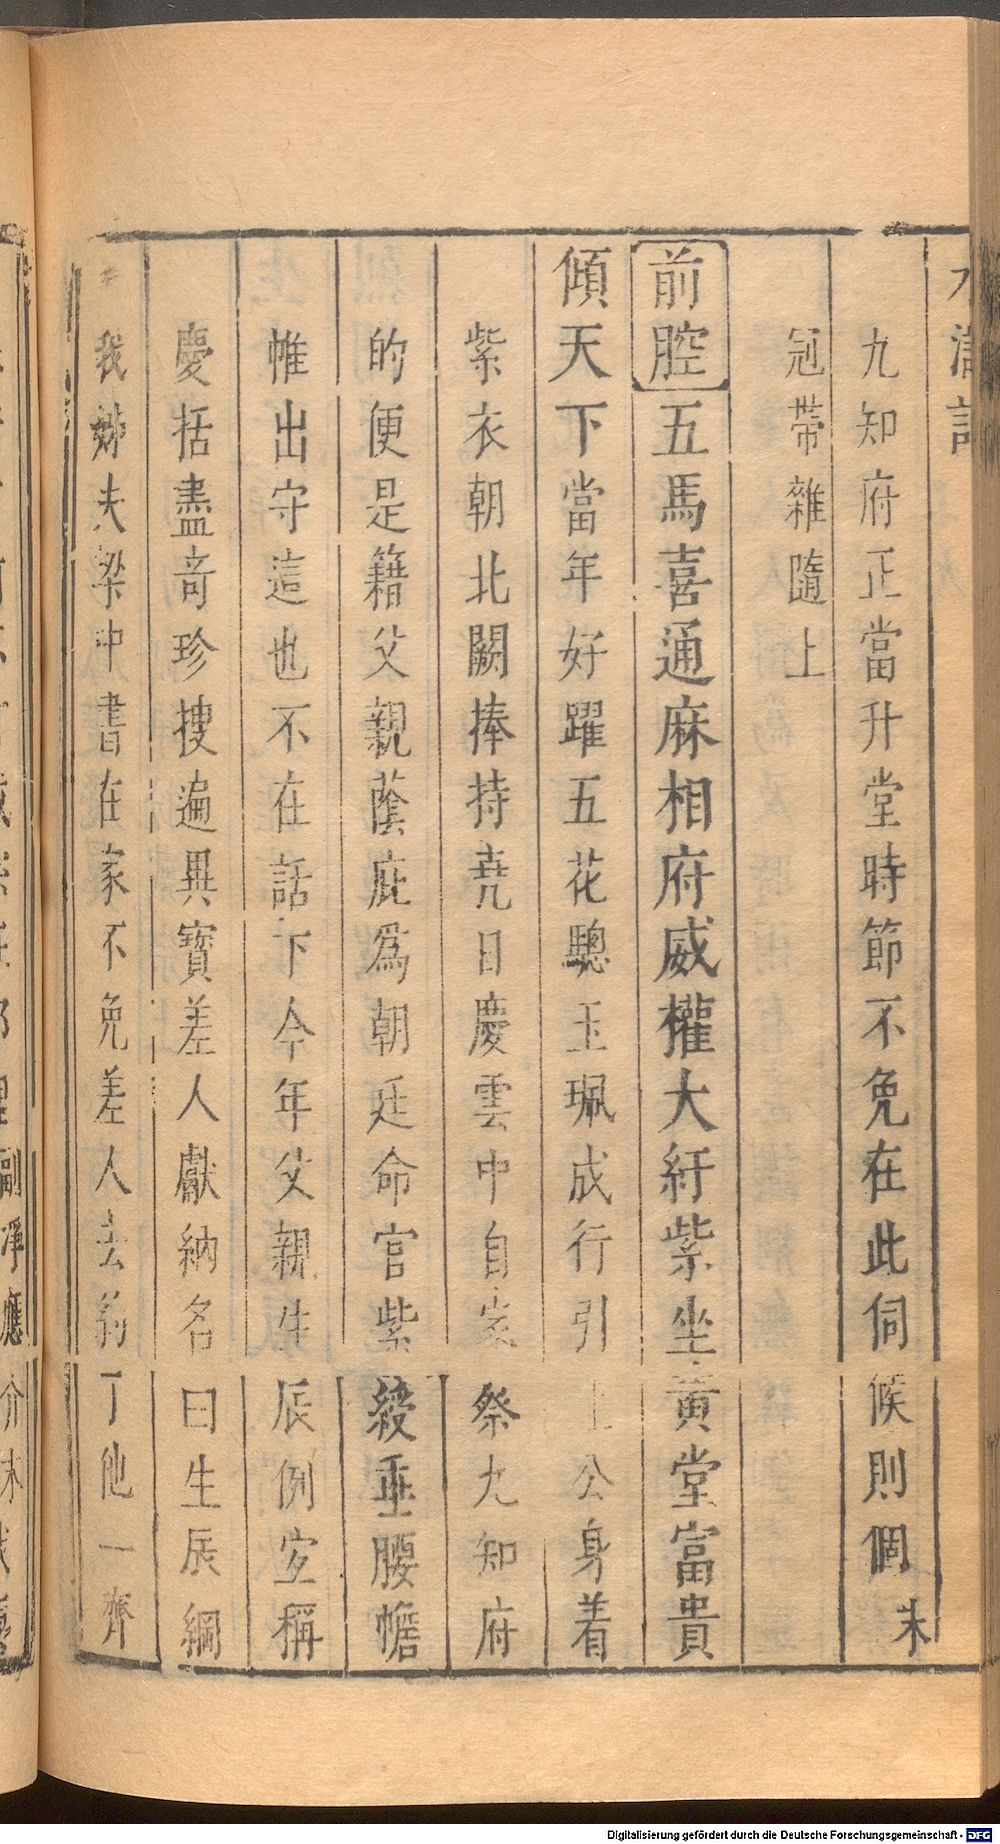 水滸記
九知府正當升堂時節不免在此伺候則個末
冠帶雜隨上
前腔五馬喜通麻相府威權大紆紫坐黃堂富貴
傾天下當年好躍五花驄玉珮成行引上公身着
紫衣朝北闕捧持堯日慶雲中自家祭九知府
的便是籍父親蔭庇為朝廷命官紫綬垂腰幨
帷出守這也不在話下今年父親生辰例宜稱
慶括盡奇珍搜遍異寶差人獻納名曰生辰綱
我姊夫梁中書在家不免差人去約了他一齊
Digitalisierung gefördert durch die Deutsche Forschungsgemeinschaft - DFG